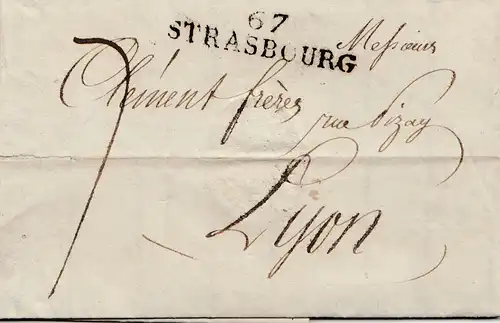 67
STRASBOURG
Messieurs
Clément frères
rue Pizay
Lyon
7